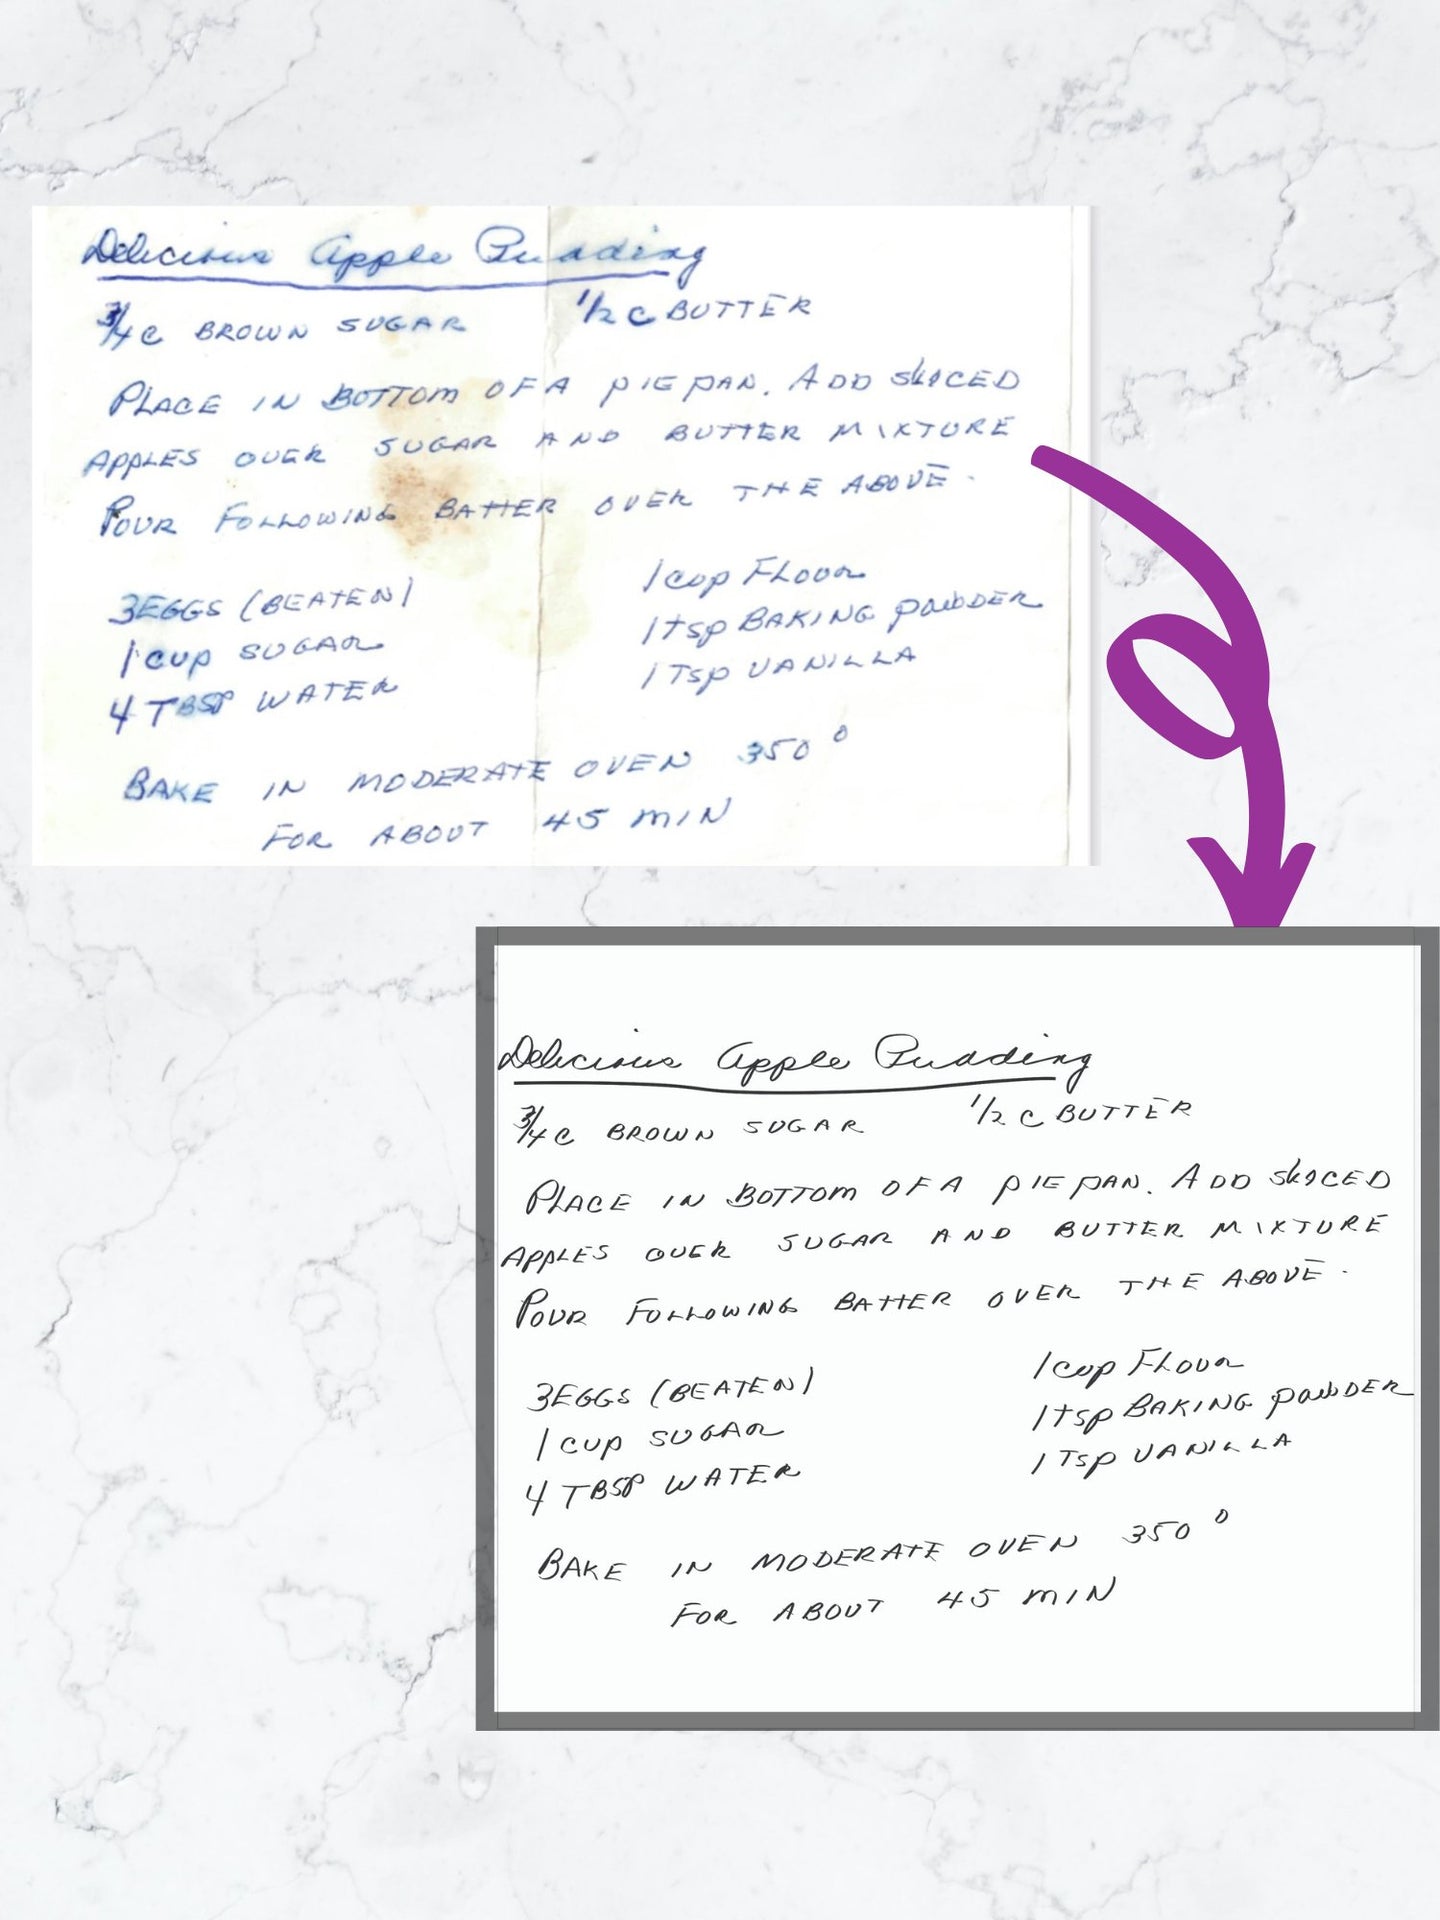 Delicious Apple Pudding
3/4 C BROWN SUGAR 1/2 C BUTTER
PLACE IN BOTTOM OF A PIE PAN. ADD SLICED
APPLES OVER SUGAR AND BUTTER MIXTURE
POUR FOLLOWING BATTER OVER THE ABOVE.
3 EGGS (BEATEN) 1 cup FLOUR
1 cup SUGAR 1 tsp BAKING POWDER
4 TBSP WATER 1 Tsp VANILLA
BAKE IN MODERATE OVEN 350°
FOR ABOUT 45 MIN
Delicious Apple Pudding
3/4 C BROWN SUGAR 1/2 C BUTTER
PLACE IN BOTTOM OF A PIE PAN. ADD SLICED
APPLES OVER SUGAR AND BUTTER MIXTURE
POUR FOLLOWING BATTER OVER THE ABOVE.
3 EGGS (BEATEN) 1 cup FLOUR
1 cup SUGAR 1 tsp BAKING POWDER
4 TBSP WATER 1 Tsp VANILLA
BAKE IN MODERATE OVEN 350°
FOR ABOUT 45 MIN